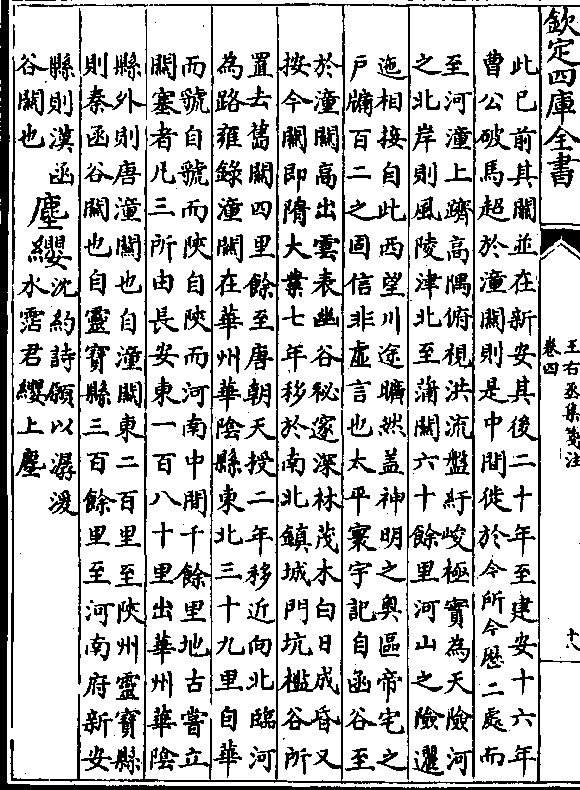 欽定四庫全書
王右丞集箋注
卷四
十八
此已前其關並在新安其後二十年至建安十六年
曹公破馬超於潼關則是中間徙於今所今歷二處而
至河潼上躋高隅俯視洪流盤紆峻極實為天險河
之北岸則風陵津北至蒲關六十餘里河山之險邐
迤相接自此西望川途曠然蓋神明之奧區帝宅之
戶牖百二之固信非虛言也太平寰宇記自函谷至
於潼關高出雲表幽谷秘邃深林茂木白日成昏又
按今關即隋大業七年移於南北鎮城門坑檻谷所
置去舊關四里餘至唐朝天授二年移近向北臨河
為路雍錄潼關在華州華陰縣東北三十九里自華
而虢自虢而陝自陝而河南中間千餘里地古嘗立
關塞者凡三所由長安東一百八十里出華州華陰
縣外則唐潼關也自潼關東二百里至陝州靈寶縣
則秦函谷關也自靈寶縣三百餘里至河南府新安
縣則漢函
谷關也
塵纓
沈約詩願以潺湲
水霑君纓上塵